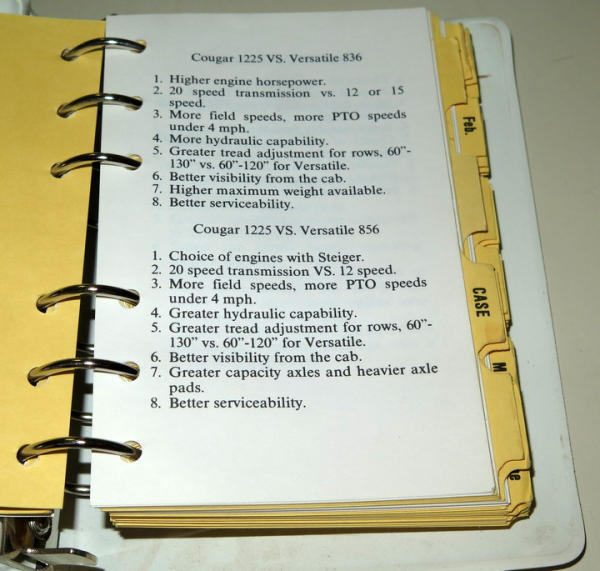 Cougar 1225 VS. Versatile 836
1. Higher engine horsepower.
2. 20 speed transmission vs. 12 or 15
speed.
3. More field speeds, more PTO speeds
under 4 mph.
4. More hydraulic capability.
5. Greater tread adjustment for rows, 60”-
130” vs. 60”-120” for Versatile.
6. Better visibility from the cab.
7. Higher maximum weight available.
8. Better serviceability.
Cougar 1225 VS. Versatile 856
1. Choice of engines with Steiger.
2. 20 speed transmission VS. 12 speed.
3. More field speeds, more PTO speeds
under 4 mph.
4. Greater hydraulic capability.
5. Greater tread adjustment for rows, 60”-
130” vs. 60”-120” for Versatile.
6. Better visibility from the cab.
7. Greater capacity axles and heavier axle
pads.
8. Better serviceability.
Feb.
CASE